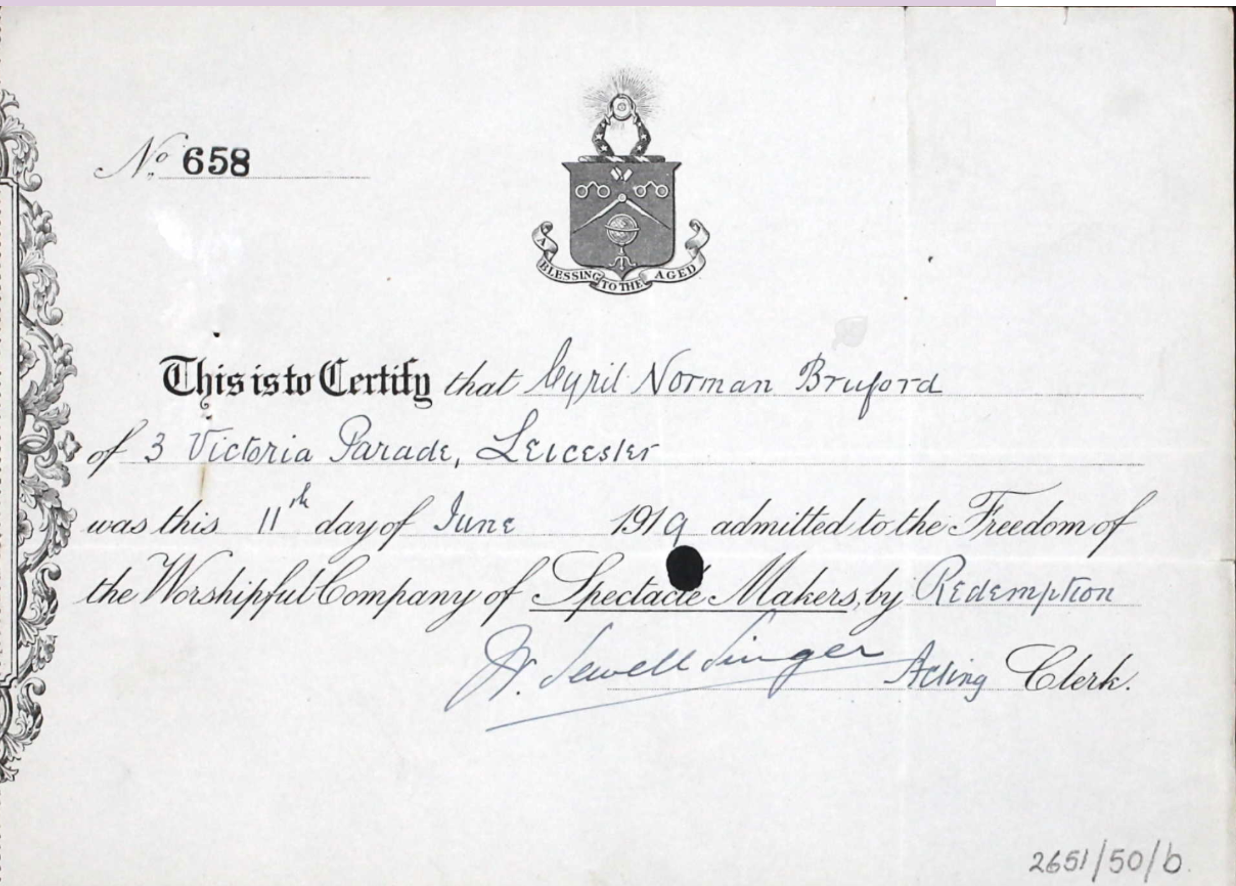 No. 658
A BLESSING TO THE AGED
This is to Certify that Cyril Norman Bruford
of 3 Victoria Parade, Leicester
was this 11th day of June 1919 admitted to the Freedom of
the Worshipful Company of Spectacle Makers, by Redemption
Sewell Singer Acting Clerk.
2651/50/b